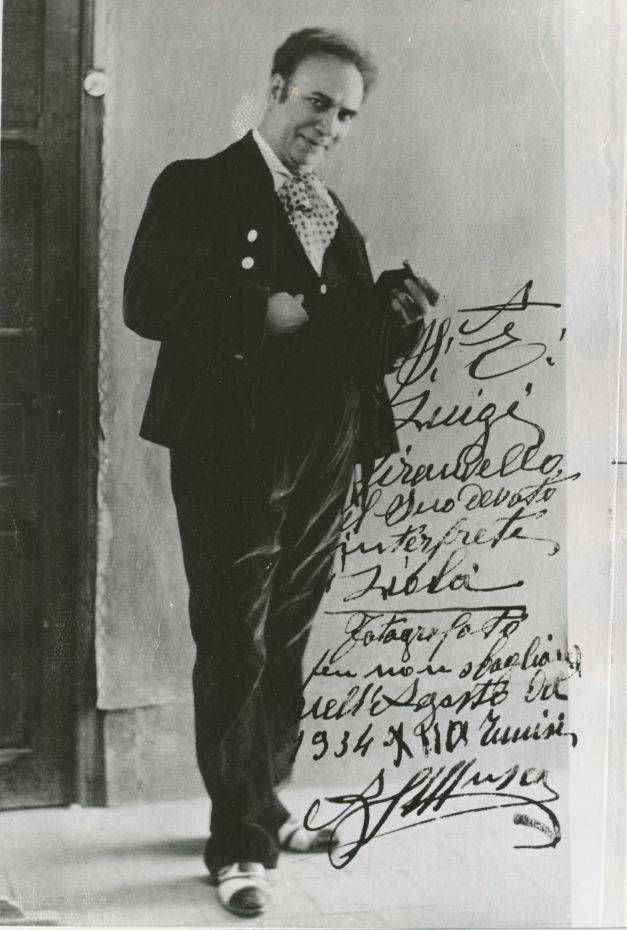 A
S. E.
Luigi
Pirandello,
il suo devoto
interprete
"Liolà
Fotografato
per non sbagliare
nell'Agosto del
1934 XII Tunisi